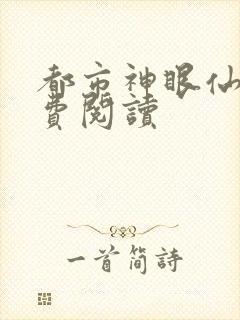 都市神眼仙
費閱讀
一首简詩